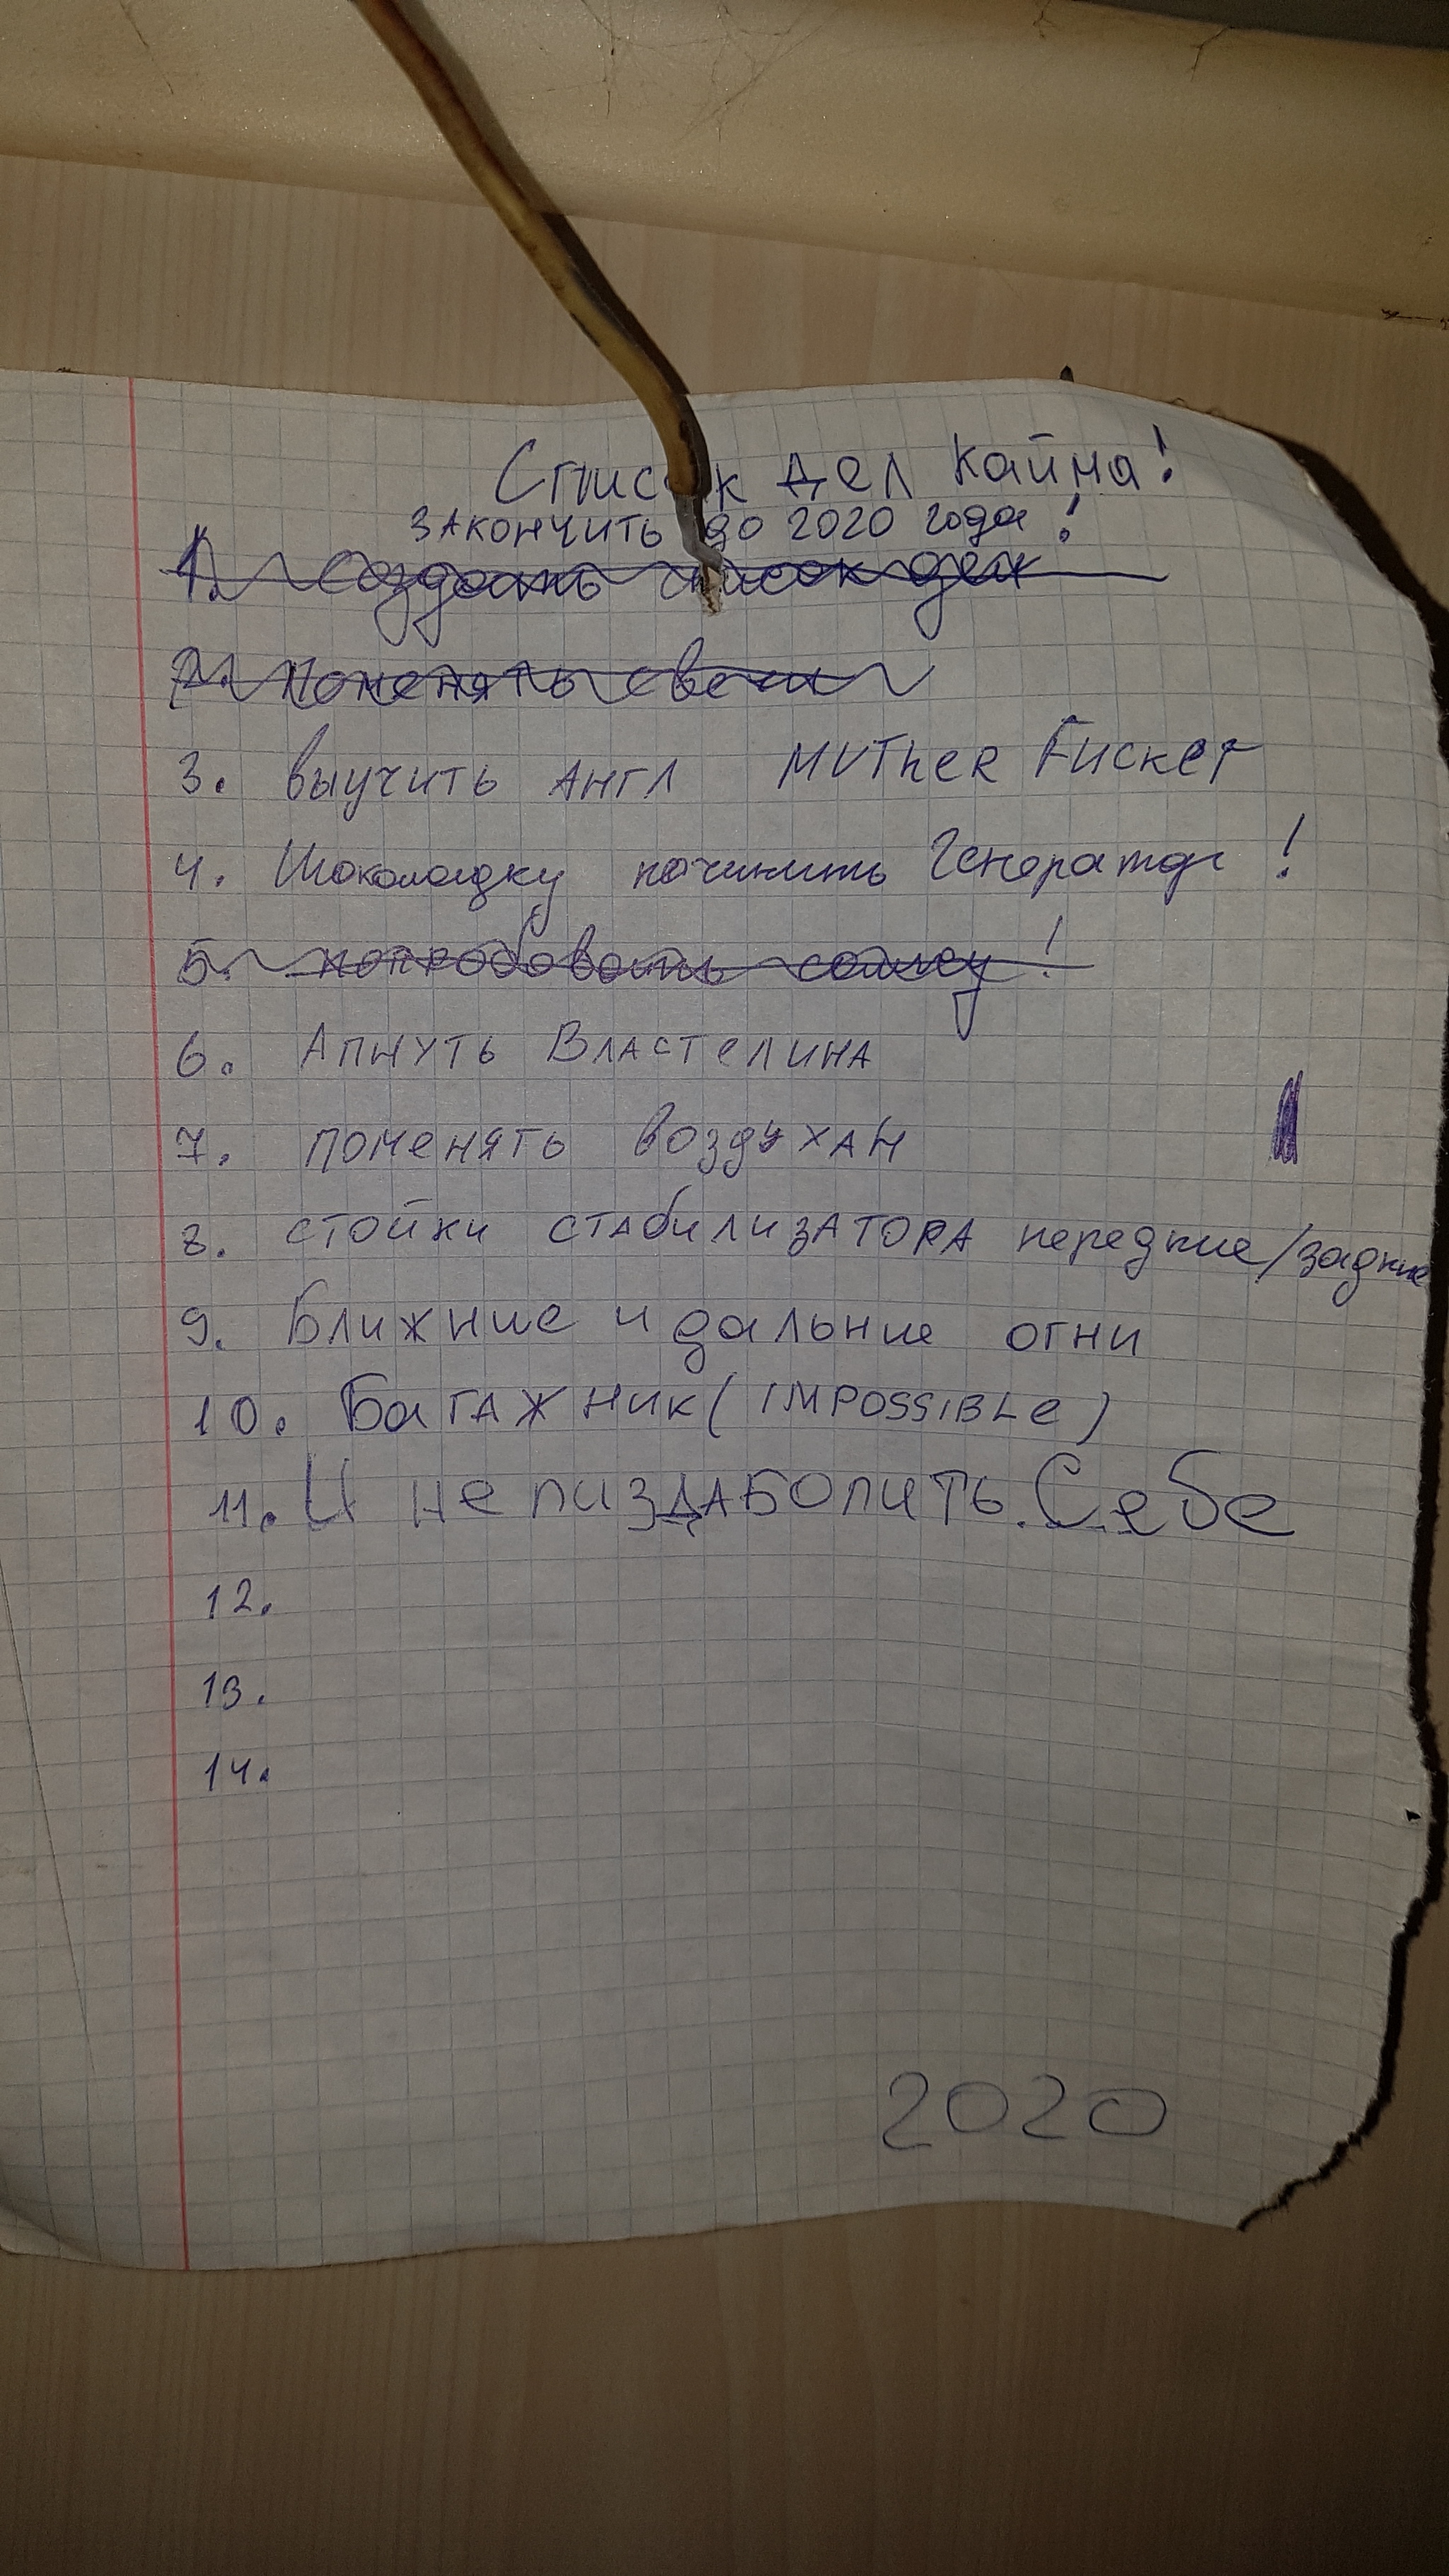 Список дел Кайна!
закончить до 2020 года!
1. Создать список дел
2. Поменять свечи
3. выучить Англ MUTheR Fucker
4. Шоколадку починить Генератор!
5. попробовать самсу!
6. Апнуть Властелина
7. поменять воздухан
8. стойки стабилизатора передние/задние
9. Ближние и дальние огни
10. Багажник (IMPOSSIBLe)
11. И не пиздаболить Себе
12.
13.
14.
2020